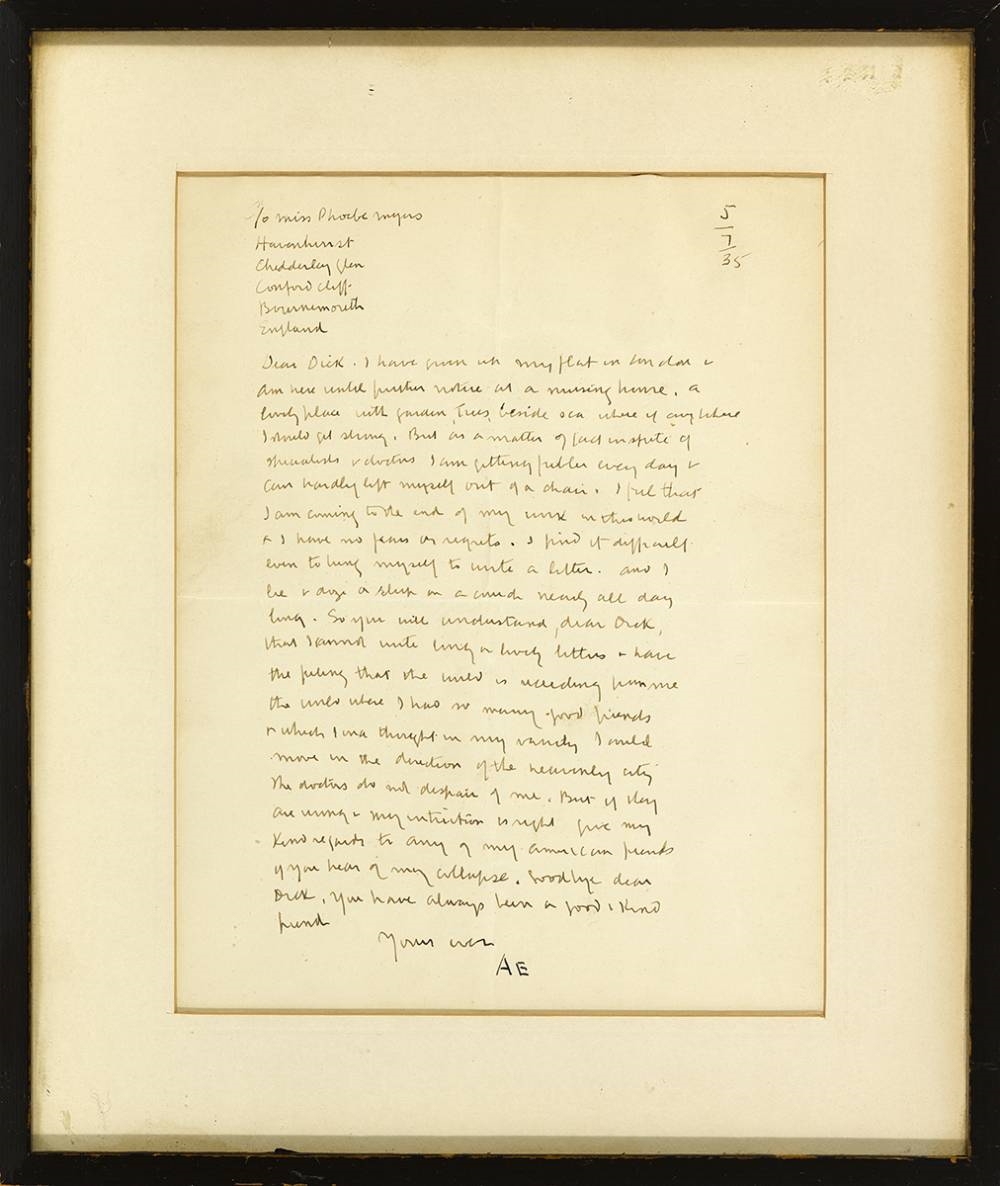 c/o Miss Phoebe Myers
Havenhurst
Chedderley Glen
Conford Cliff
Bournemouth
England
5
7
35
Dear Dick. I have given up my flat in London &
am here until further notice at a nursing home, a
lovely place with garden, trees, beside sea where if anywhere
I should get strong. But as a matter of fact inspite of
specialists & doctors I am getting feebler every day &
can hardly lift myself out of a chair. I feel that
I am coming to the end of my work in this world
& I have no fears or regrets. I find it difficult
even to bring myself to write a letter. and I
lie & doze or sleep on a couch nearly all day
long. So you will understand, dear Dick,
that I cannot write long or lively letters & have
the feeling that the world is receding from me
the world where I had so many good friends
& which I once thought in my vanity I could
move in the direction of the heavenly city
The doctors do not despair of me. But if they
are wrong & my intuition is right give my
kind regards to any of my american friends
if you hear of my collapse. Goodbye dear
Dick, you have always been a good & kind
friend
Yours ever
AE